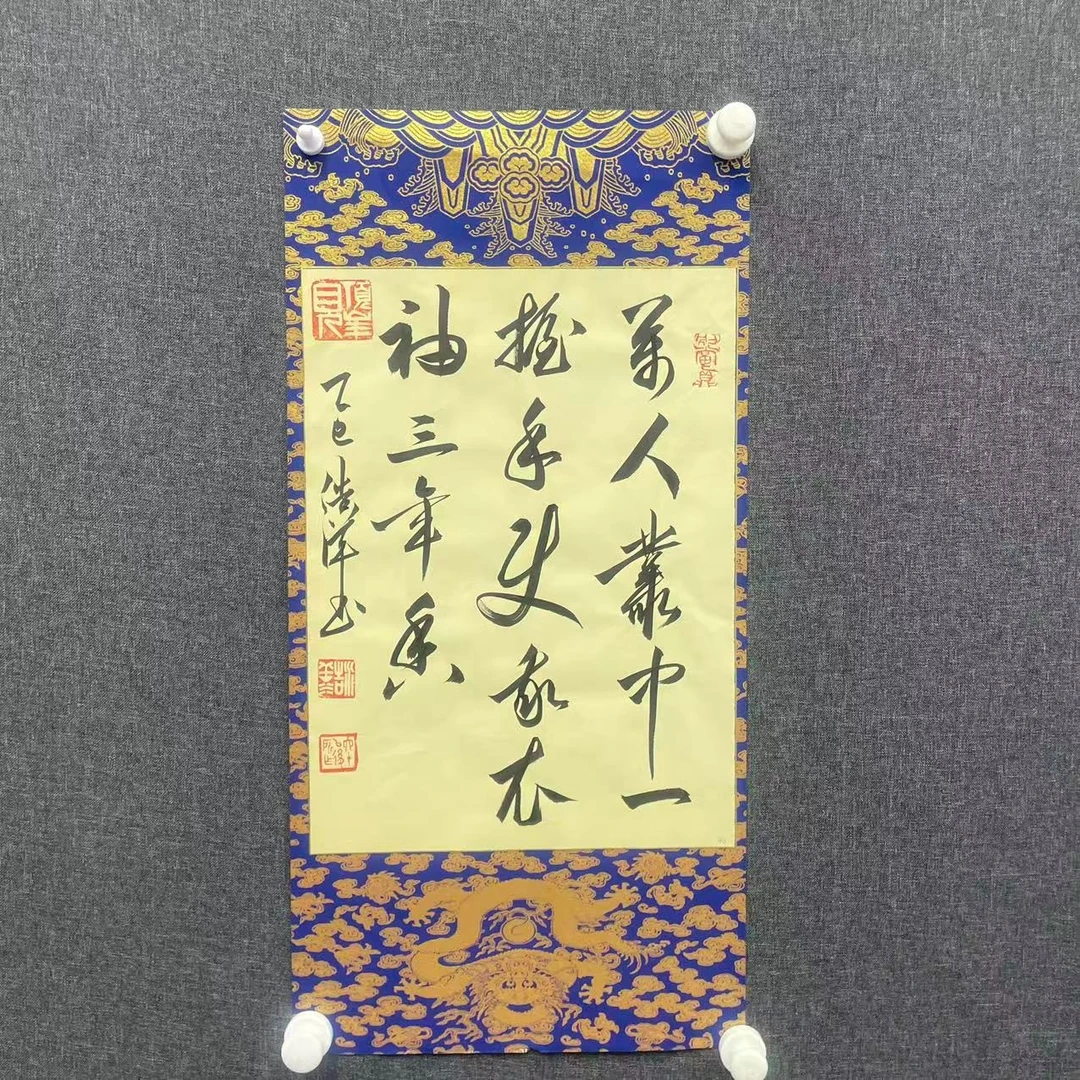 萬人叢中一
握手使我衣
袖三年香
乙巳浩洋书